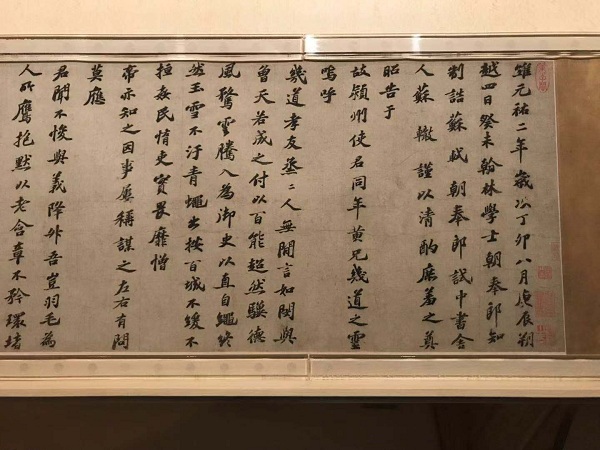 維元祐二年歲次丁卯八月庚辰朔
越四日癸未翰林學士朝奉郎知
制誥蘇軾朝奉郎試中書舍
人蘇轍謹以清酌庶羞之奠
昭告于
故潁州使君同年黃兄幾道之靈
嗚呼
幾道孝友烝二人無間言如閔與
曾天若成之付以百能超然驥德
風騖雲騰入為御史以直自繩終
然玉雪不汙青蠅出按百城不緩不
搄姦民惰吏實畏靡憎
帝亦知之因事屢稱謀之左右有問
莫應
君聞不悛與義降升吾豈羽毛為
人所鷹抱默以老含章不矜環堵